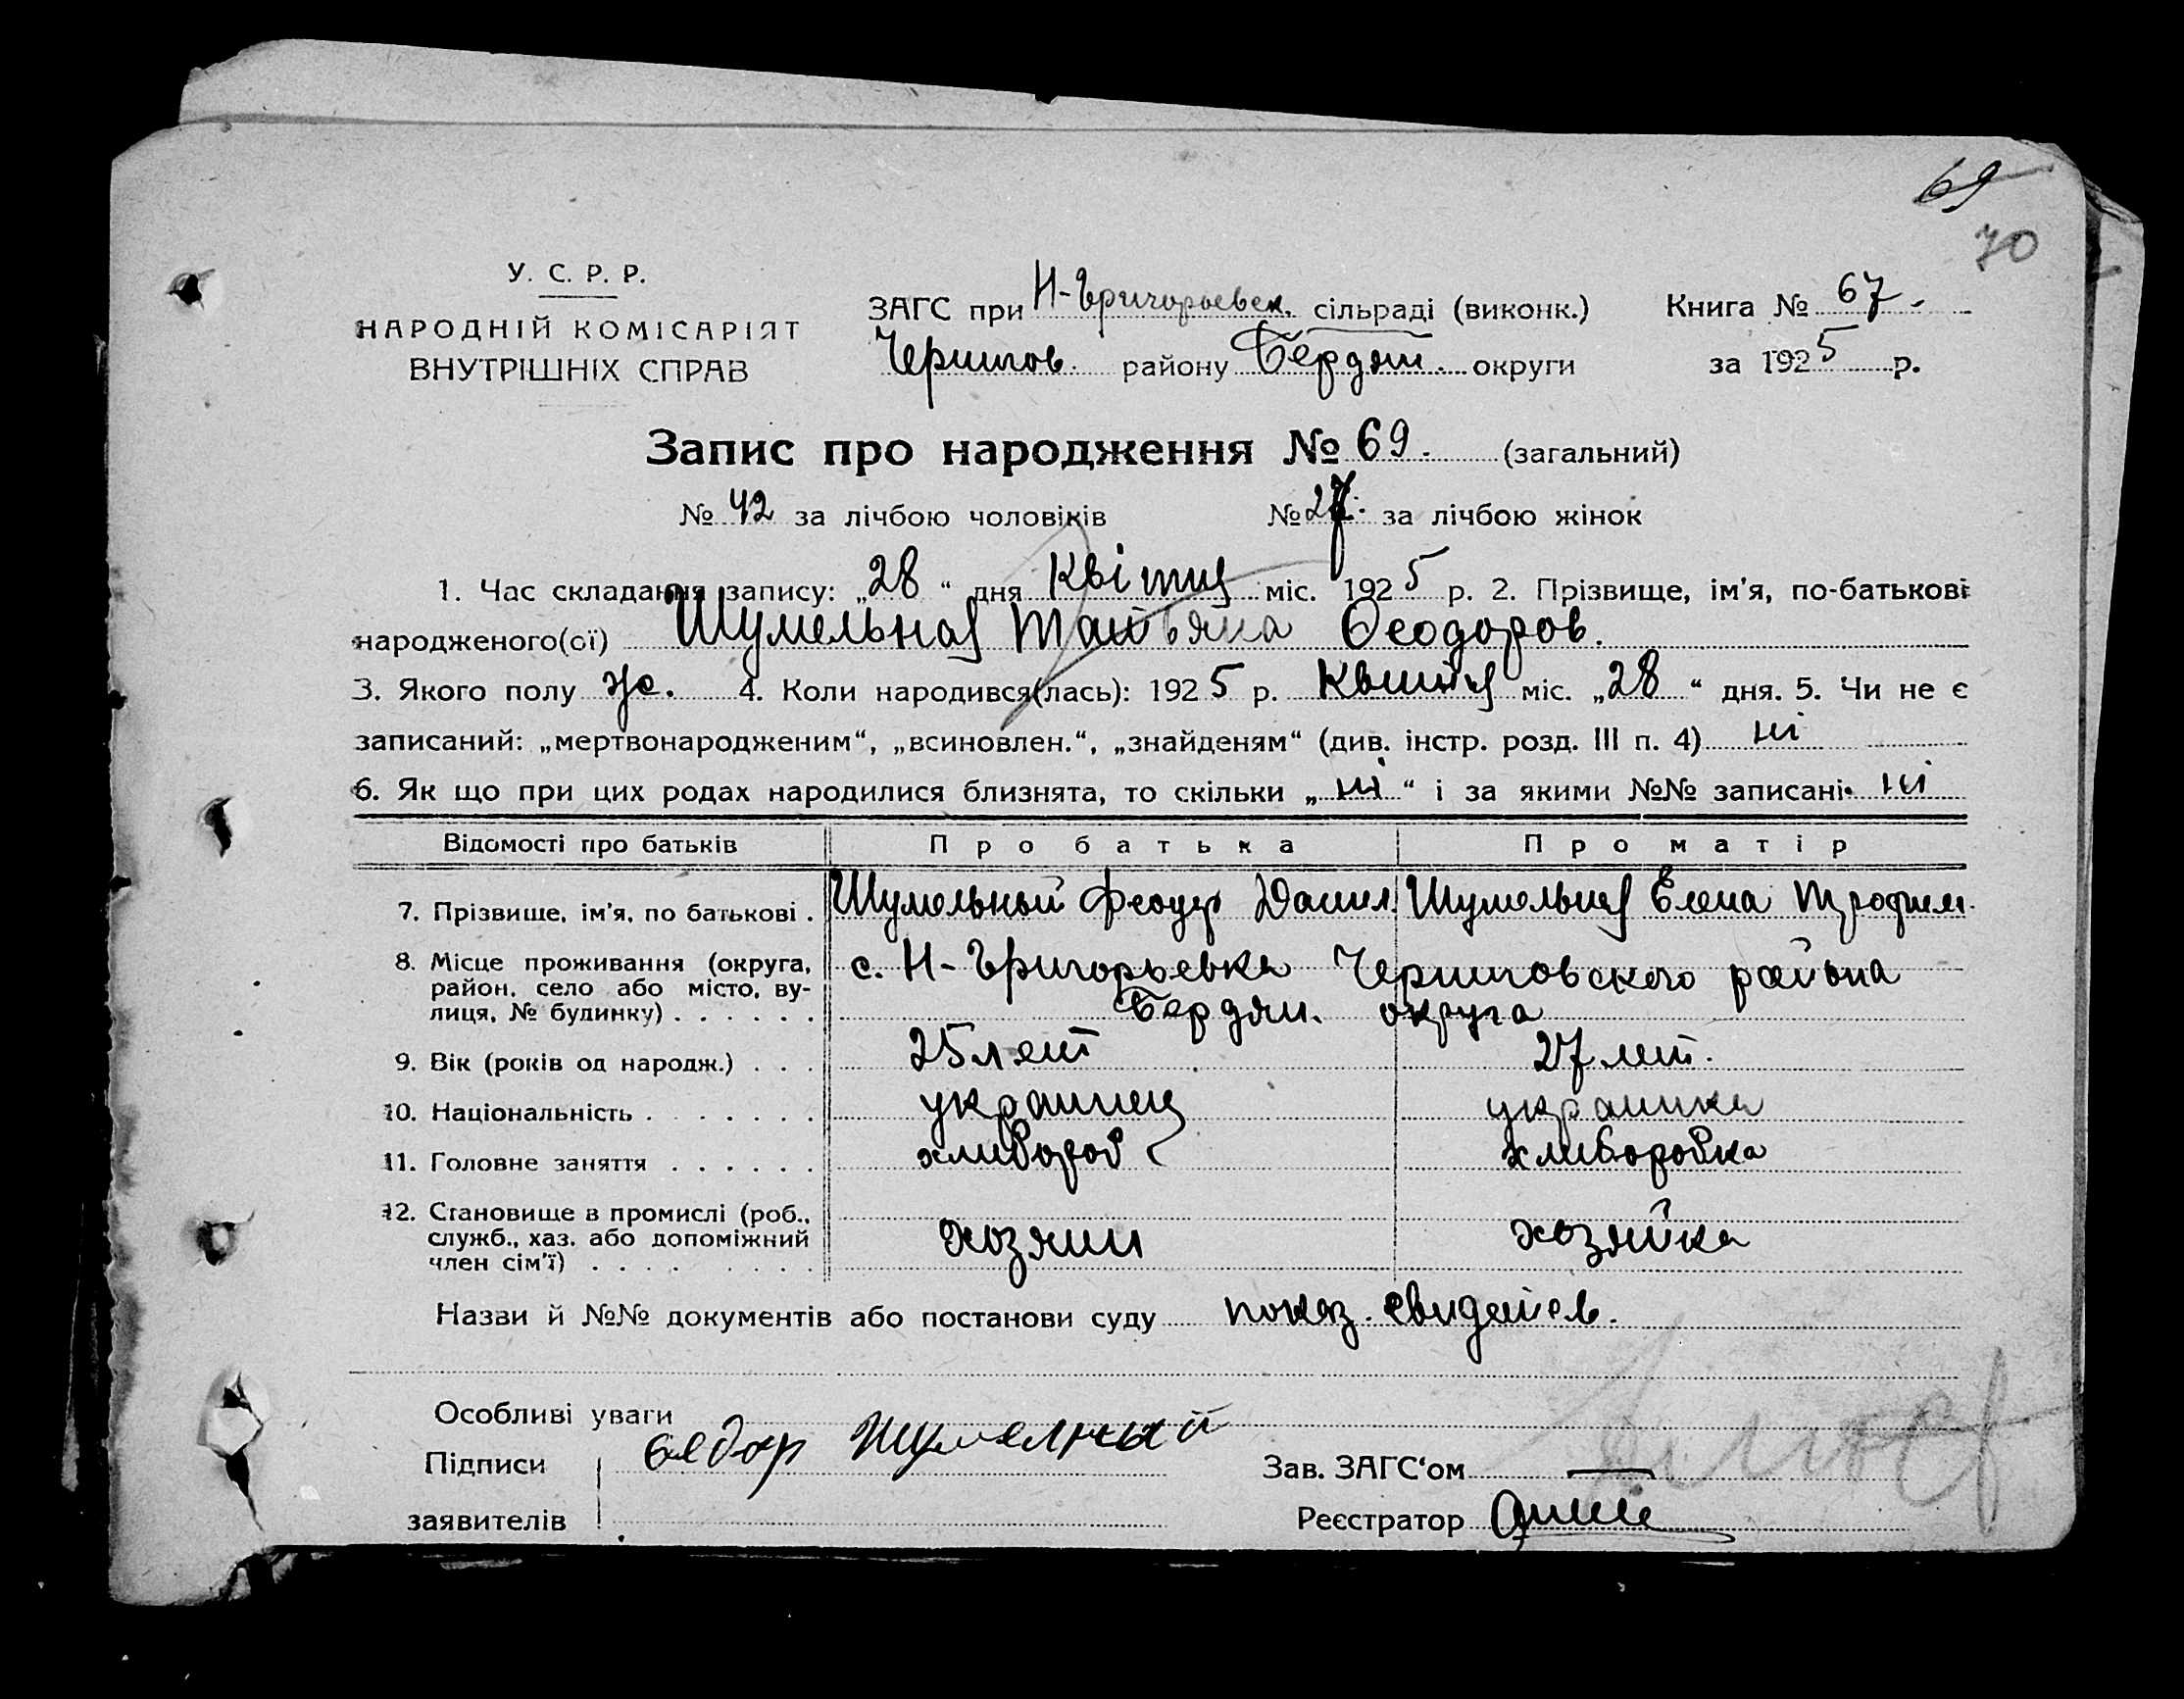 69
70
У. С. Р. Р.
НАРОДНІЙ КОМІСАРІЯТ
ВНУТРІШНІХ СПРАВ
ЗАГС при Н-Григорьевск. сільраді (виконк.)
Книга № 67.
Чернигов. району Бердян. округи
за 1925 р.
Запис про народження № 69. (загальний)
№ 42 за лічбою чоловіків № 27. за лічбою жінок
1. Час складання запису: „28“ дня Квітня міс. 1925 р. 2. Прізвище, ім'я, по-батькові
народженого(ої) Шумельная Татьяна Феодоров.
3. Якого полу ж. 4. Коли народився(лась): 1925 р. Квитня міс. „28“ дня. 5. Чи не є
записаний: „мертвонародженим“, „всиновлен.“, „знайденям“ (див. інстр. розд. III п. 4) ні
6. Як що при цих родах народилися близнята, то скільки „ні“ і за якими №№ записані ні
Відомості про батьків Про батька Про матір
7. Прізвище, ім'я, по батькові . Шумельный Феодор Данил. Шумельная Елена Трофим.
8. Місце проживання (округа, район, село або місто, вулиця, № будинку) . . . . . . с. Н-Григорьевка Черниговского района
Бердян. округа
9. Вік (років од народж.) . . . 25 лет 27 лет.
10. Національність . . . . . . . украинец украинка
11. Головне заняття . . . . . . хлибороб хлиборобка
12. Становище в промислі (роб., служб., хаз. або допоміжний член сім'ї) . . . . . . . . хозяин хозяйка
Назви й №№ документів або постанови суду показ. свидетел.
Особливі уваги
Підписи Федор Шумелный
Зав. ЗАГС'ом —
заявителів
Реєстратор